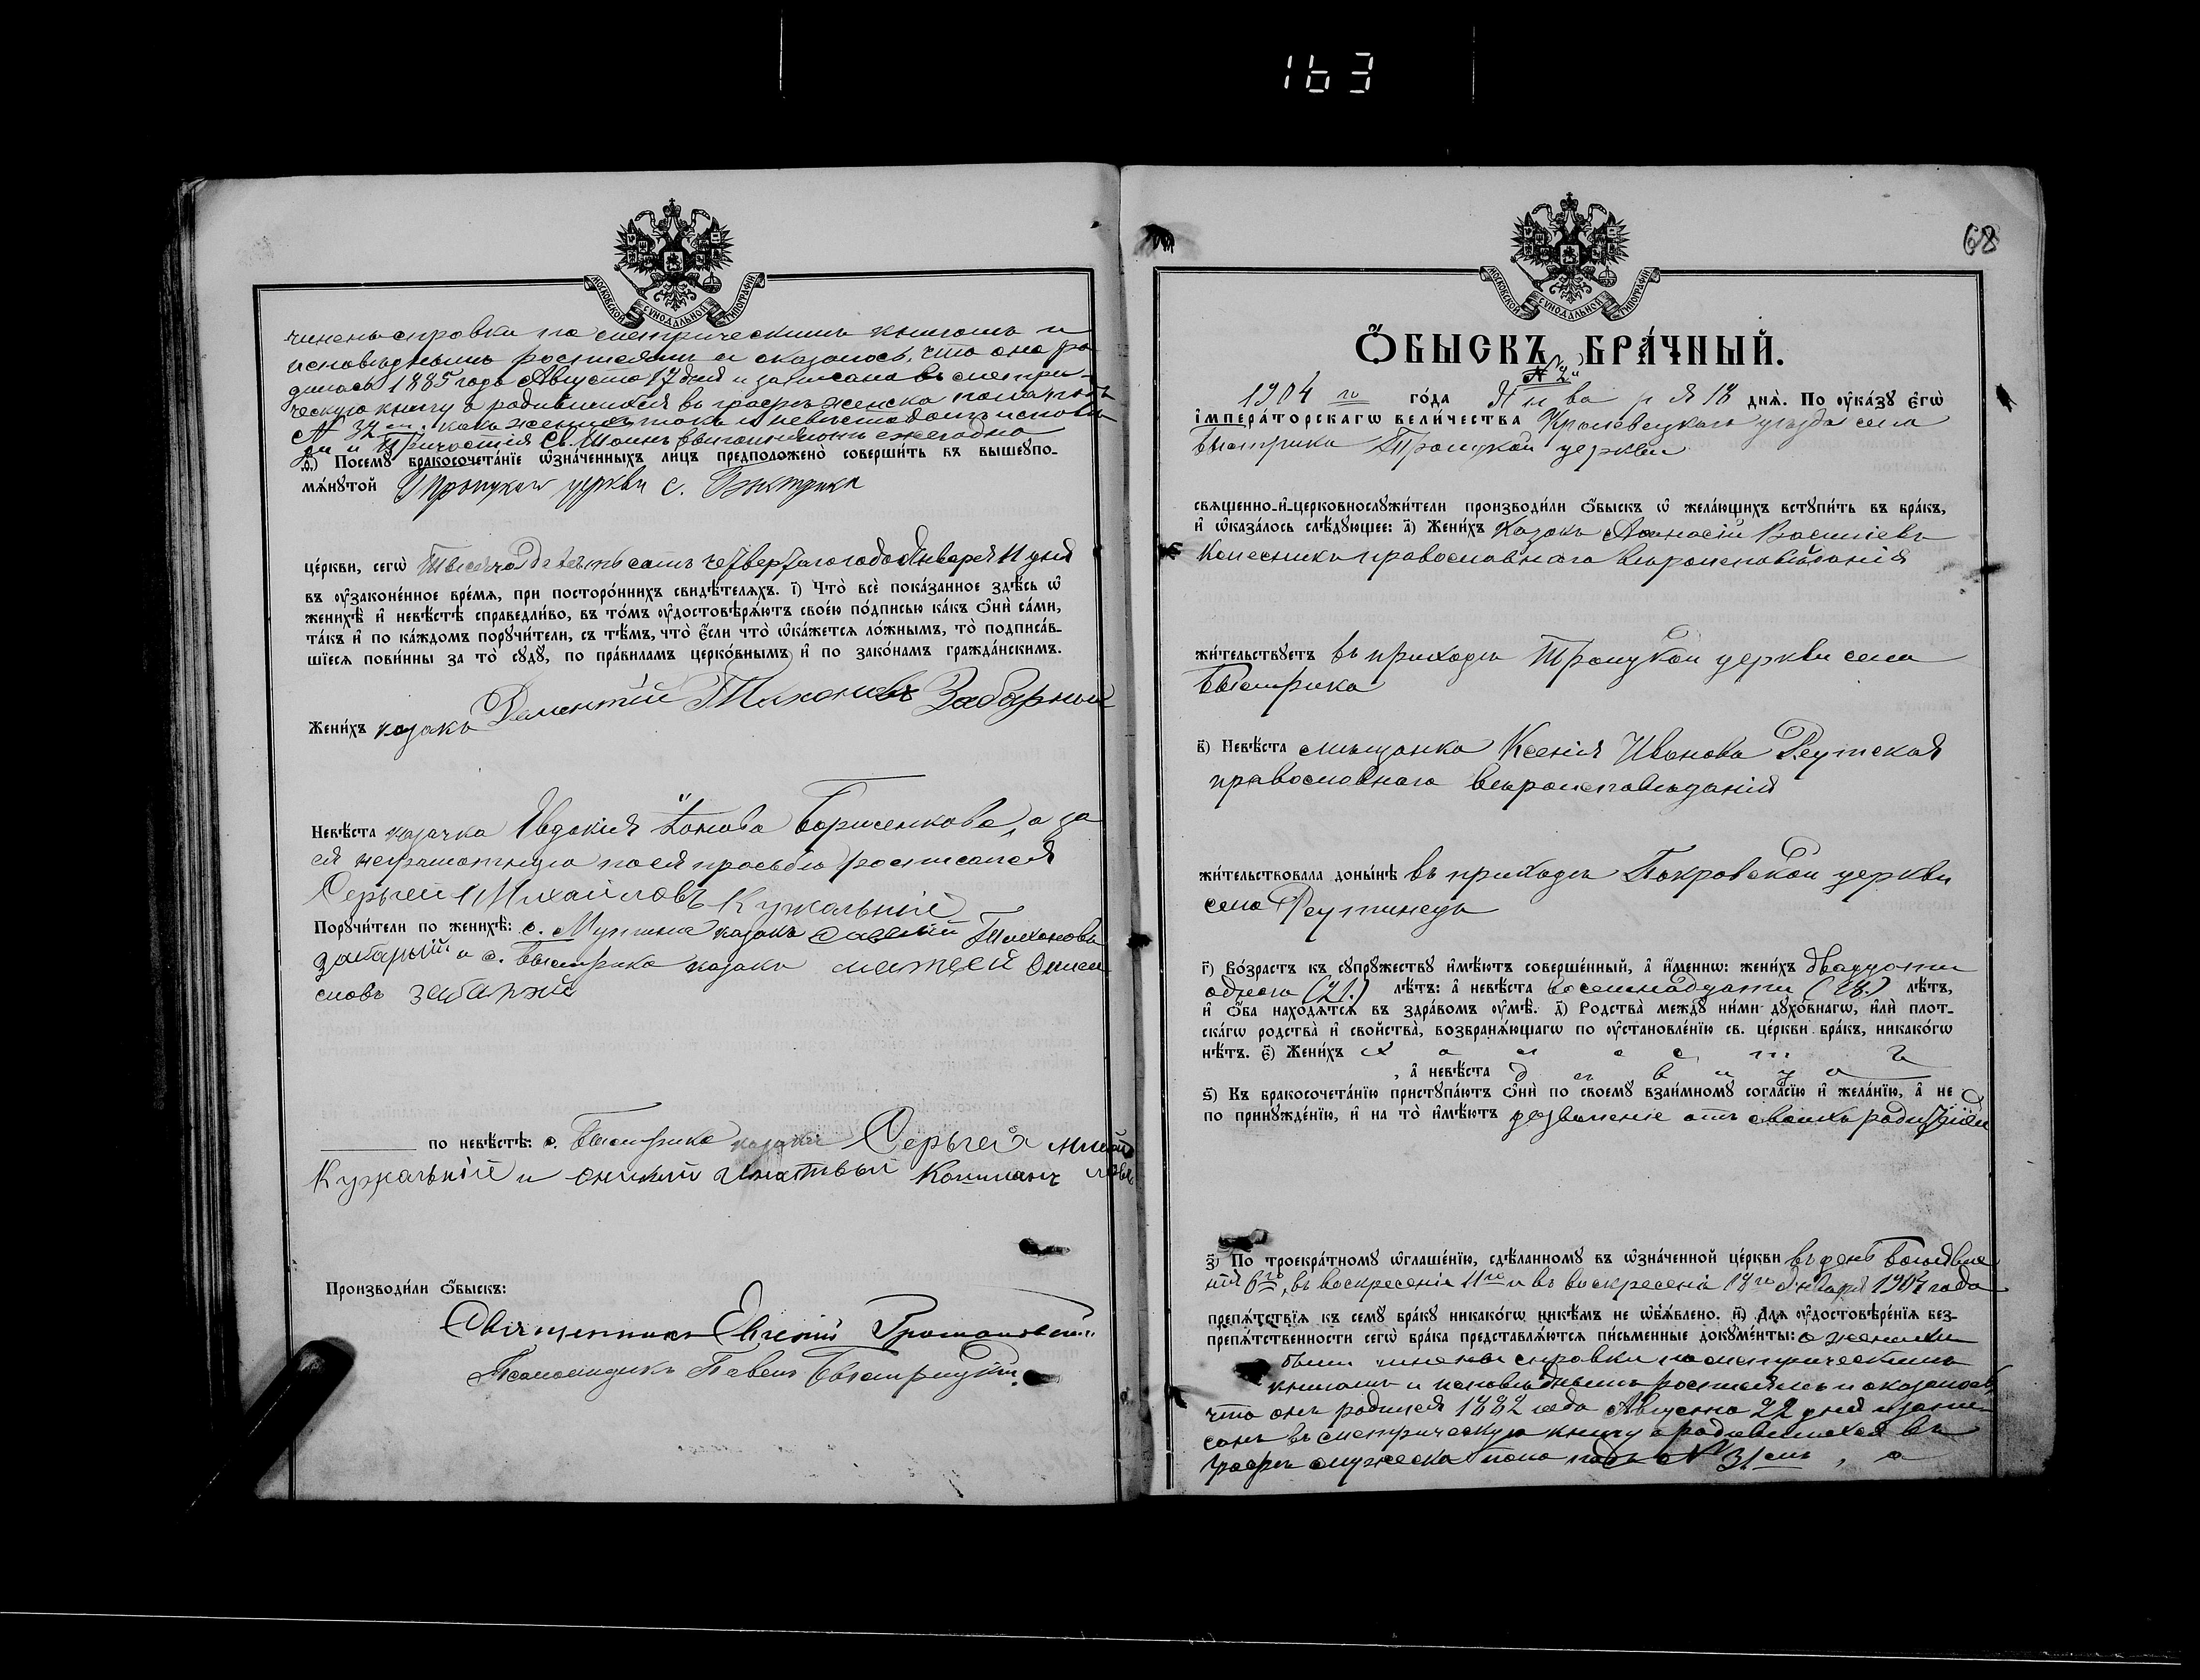 163
МОСКОВСКОЙ СѴНОДАЛЬНОЙ ТИПОГРАФІИ
чинены справки по метрическимъ книгамъ и
исповѣднымъ росписямъ и оказалось, что она ро
дилась 1885 года Августа 17 дня и записана въ метри-
ческую книгу о родившихся въ графѣ женска пола подъ
№ 34 м. какъ женихъ, такъ и невѣста долгъ исповѣ
ди и Причастія Св. Таинъ выполняютъ ежегодно
ѳ҃) Посемꙋ̀ бракосочета́нїе ѡ҆зна́ченныхъ ли́цъ предположено̀ соверши́ть въ вышеꙋпо-
мѧ́нꙋтой Троицкой церкви с. Быстрика
це́ркви, сегѡ̀ Тысяча девятьсотъ четвертаго года Января 11 дня
въ ᲂу҆зако́ненное вре́мѧ, при посторо́ннихъ свидѣ́телѧхъ. і҃) Что̀ всѐ пока́занное здѣ́сь ѡ҆
женихѣ̀ и҆ невѣ́стѣ справедли́во, въ то́мъ ᲂу҆достовѣрѧ́ютъ свое́ю по́дписью ка́къ ѻ҆нѝ са́ми,
та́къ и҆ по ка́ждомъ порꙋчи́тели, съ тѣ́мъ, что̀ є҆́сли что̀ ѡ҆ка́жетсѧ ло́жнымъ, то̀ подписа́в-
шїесѧ пови́нны за то̀ сꙋдꙋ̀, по пра́виламъ церко́внымъ и҆ по зако́намъ гражда́нскимъ.
Жени́хъ козакъ Дементій Тихоновъ Забарный
Невѣ́ста козачка Евдокія Борисенкова, а за
ея неграмотную по ея просьбѣ росписался
Сергѣй Михайловъ Кужальній
Порꙋчи́тели по женихѣ̀: с. Мутина козакъ Савелій Тихоновъ
Забарный и с. Быстрика козакъ Матвей
забарній
по невѣ́стѣ: с. Быстрика козаки Сергѣй Михай
ловъ
Кужальній и Игнатьвъ
Производи́ли ѻ҆́быскъ:
Священникъ Евгеній Громаковскій
Псаломщикъ Павелъ Быстрицкій
68
МОСКОВСКОЙ СѴНОДАЛЬНОЙ ТИПОГРАФІИ
Ѻ҆́БЫСКЪ БРА́ЧНЫЙ.
№ 2й
1904 го го́да Января 18 днѧ̀. По ᲂу҆ка́зꙋ є҆гѡ̀
і҆мпера́торскагѡ вели́чества Кролевецкаго уѣзда села
Быстрика Троицкой церкви
свѧщенно-и҆-церковнослꙋжи́тели производи́ли ѻ҆́быскъ ѡ҆ жела́ющихъ встꙋпи́ть въ бра́къ,
и҆ ѡ҆каза́лось слѣ́дꙋющее: а҃) Жени́хъ Козакъ Аѳанасій Васильевъ
Колесникъ православнаго вѣроисповѣданія
жи́тельствꙋетъ въ приходѣ Троицкой церкви села
Быстрика
в҃) Невѣ́ста мѣщанка Ксенія Иванова Реутская
православнаго вѣроисповѣданія
жи́тельствовала доны́нѣ въ приходѣ Покровской церкви
села Реутинецъ
г҃) Во́зрастъ къ сꙋпрꙋ́жествꙋ и҆мѣ́ютъ соверше́нный, а҆ и҆́меннѡ: жени́хъ двадцати
одного (21.) лѣ́тъ: а҆ невѣ́ста восемнадцати (18.) лѣ́тъ,
и҆ ѻ҆́ба нахо́дѧтсѧ въ здра́вомъ ᲂу҆мѣ̀. д҃) Родства̀ междꙋ̀ ни́ми дꙋхо́внагѡ, и҆лѝ плот-
ска́гѡ родства̀ и҆ свойства̀, возбранѧ́ющагѡ по ᲂу҆становле́нїю св. це́ркви бра́къ, никако́гѡ
нѣ́тъ. є҃) Жени́хъ холостъ
, а҆ невѣ́ста дѣвица
ѕ҃) Къ бракосочета́нїю пристꙋпа́ютъ ѻ҆нѝ по своемꙋ̀ взаи́мномꙋ согла́сїю и҆ жела́нїю, а҆ не
по принꙋжде́нїю, и҆ на то̀ и҆мѣ́ютъ дозволеніе отъ своихъ родителей
з҃) По троекра́тномꙋ ѡ҆глаше́нїю, сдѣ́ланномꙋ въ ѡ҆зна́ченной це́ркви въ день Богоявле
нія 6го, въ воскресеніе 11го и въ воскресеніе 18го Января 1904 года
препѧ́тствїѧ къ семꙋ̀ бра́кꙋ никако́гѡ никѣ́мъ не ѡ҆б̾ѧ́влено. и҃) Длѧ ᲂу҆достовѣ́ренїѧ без-
препѧ́тственности сегѡ̀ бра́ка представлѧ́ютсѧ пи́сьменные докꙋме́нты: о женихѣ
были чинены справки по метрическимъ
книгамъ и исповѣднымъ росписямъ и оказалось,
что онъ родился 1882 года Августа 22 дня и запи-
санъ въ метрическую книгу о родившихся въ
графѣ мужеска пола подъ № 31 мъ, а